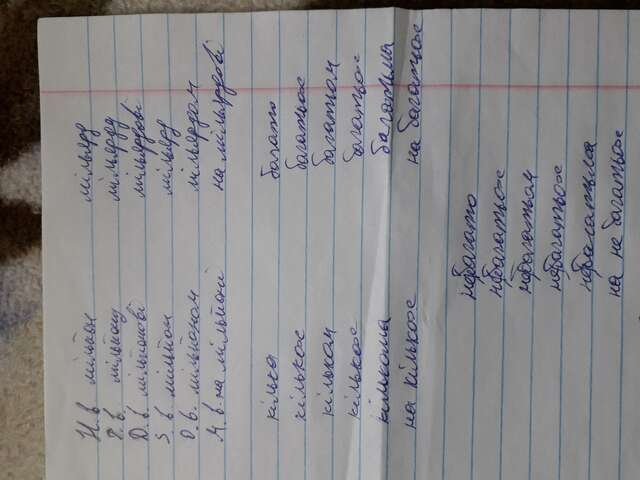 Н. в. мільйон мільярд
Р. в. мільйону мільярду
Д. в. мільйонові мільярдові
З. в. мільйон мільярд
О. в. мільйоном мільярдом
М. в. на мільйоні на мільярдові
кілька багато
кількох багатьох
кільком багатьом
кількох багатьох
кількома багатьма
на кількох на багатьох
небагато
небагатьох
небагатьом
небагатьох
небагатьма
на не багатьох